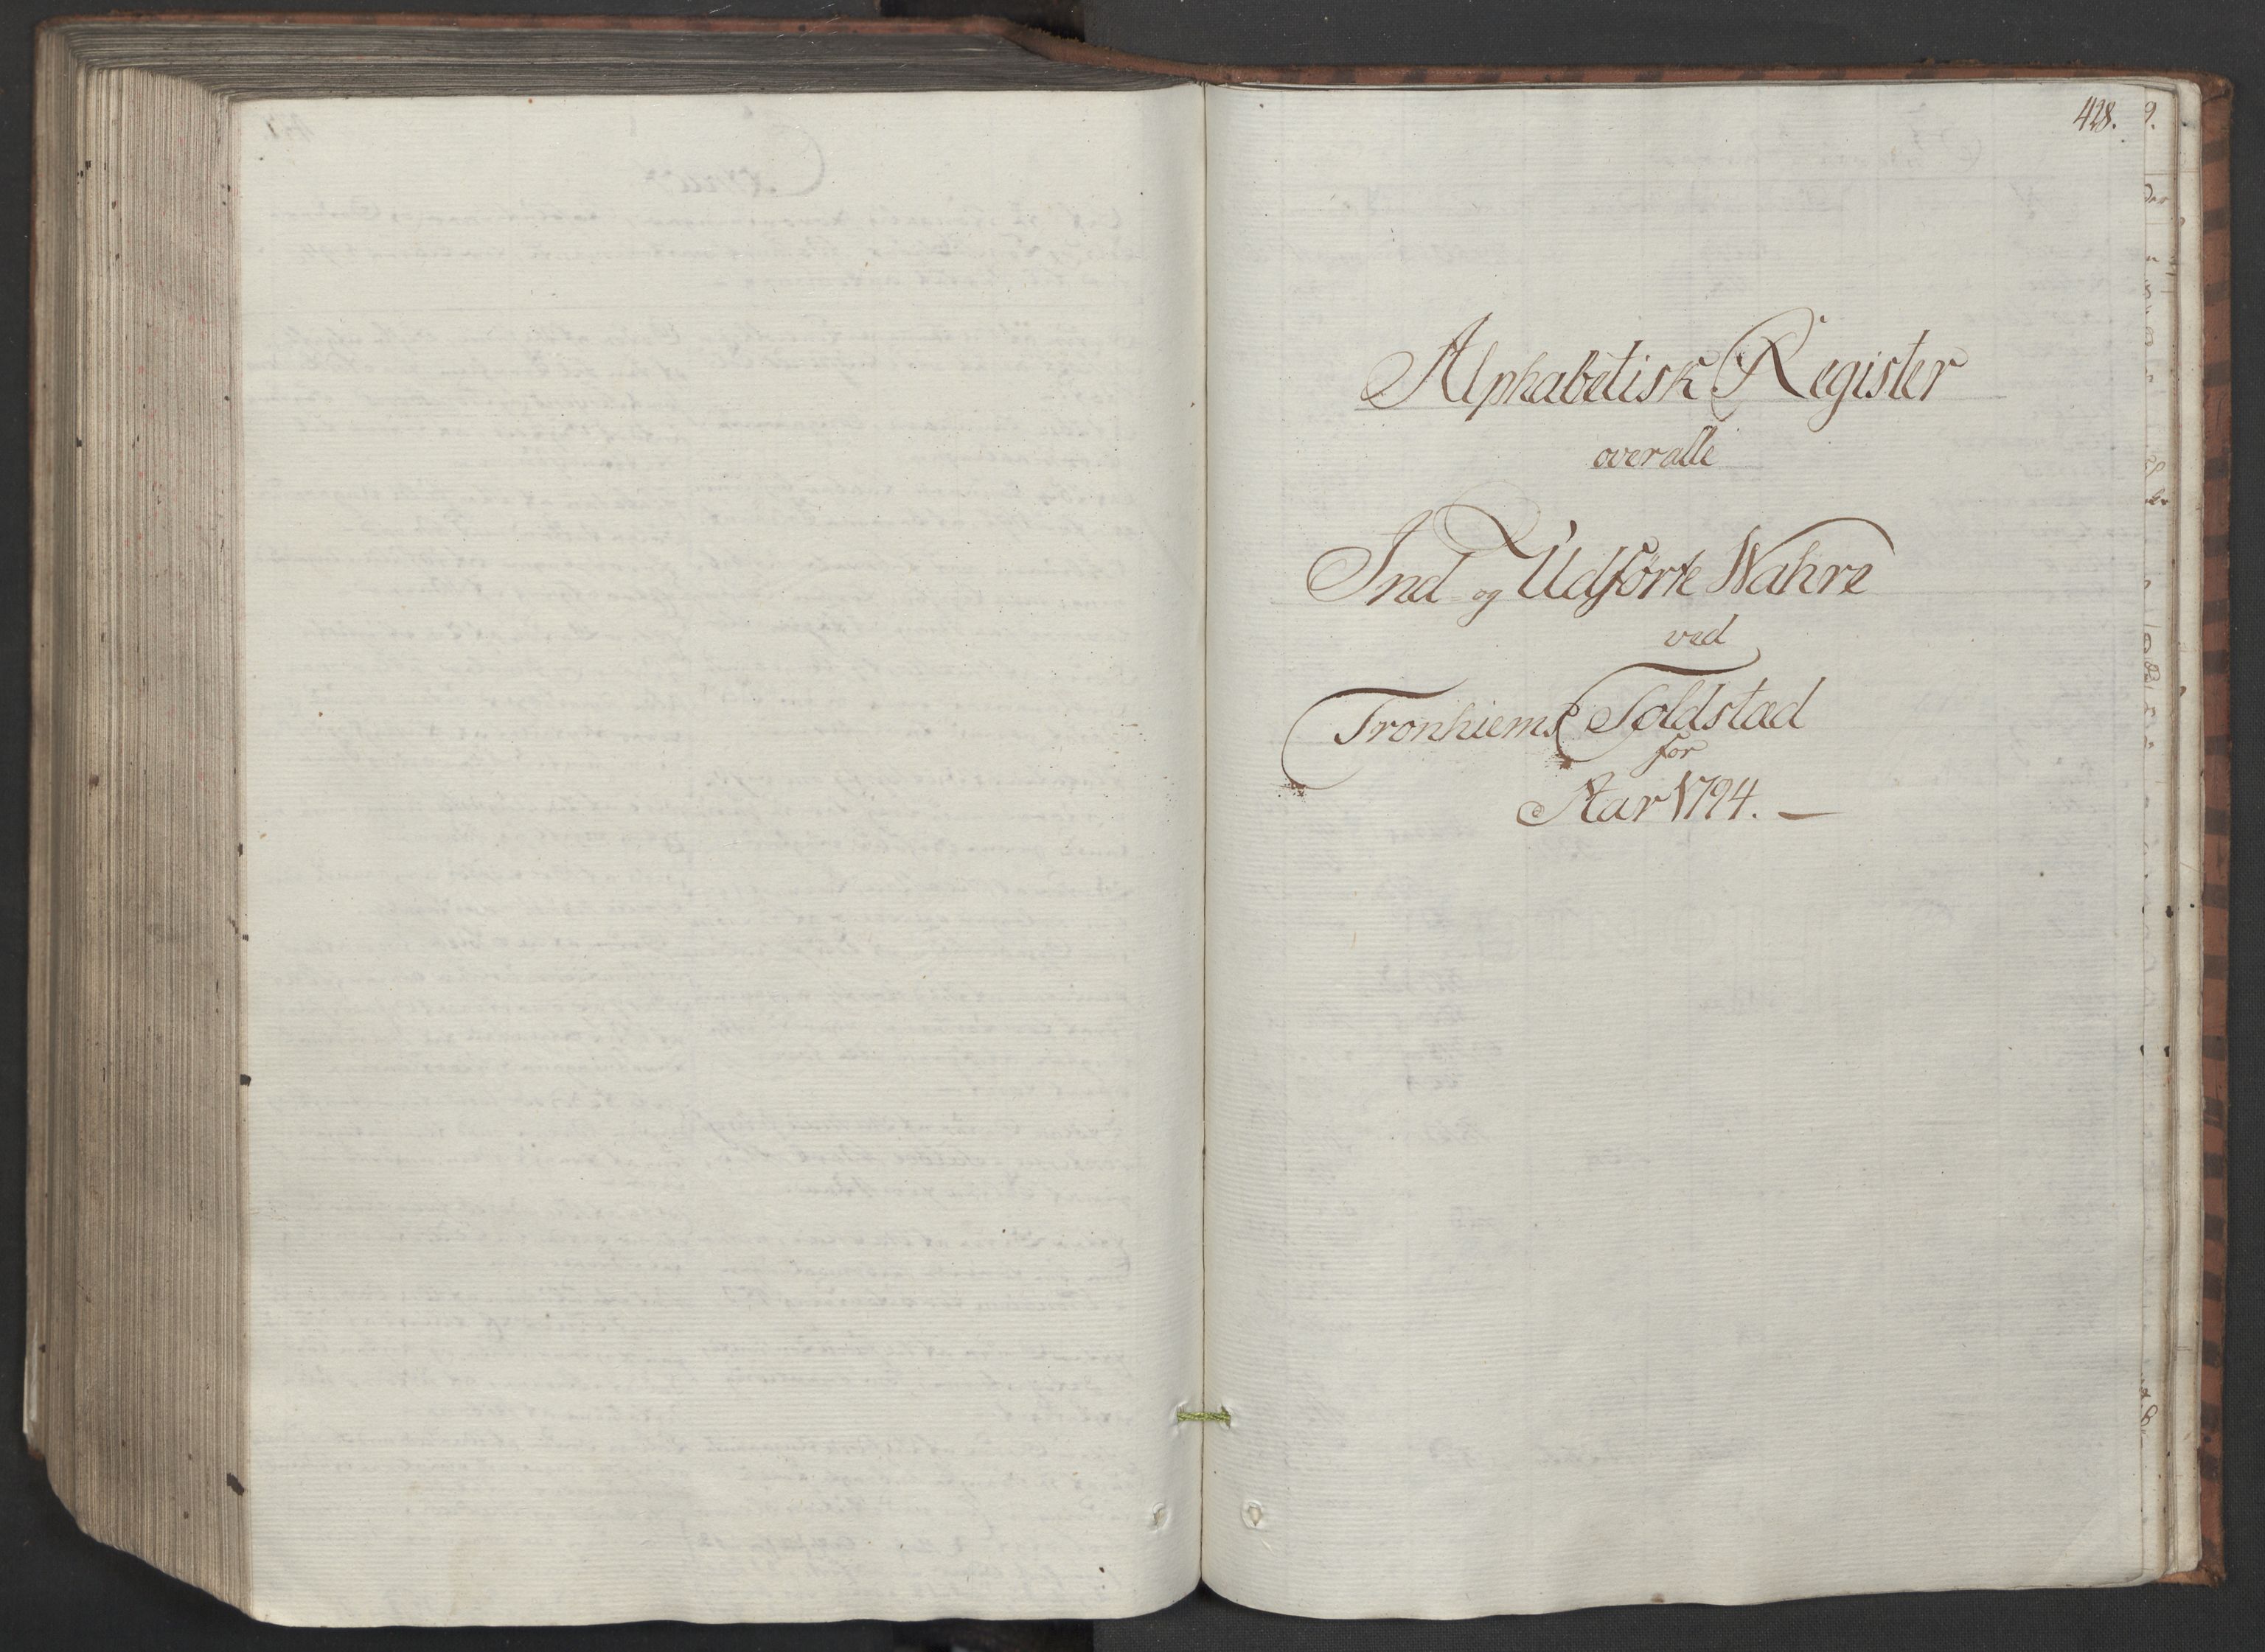 428.
Alphabetisk Register
over alle
Ind og Udførte Wahre
ved
Tronhiems Toldstæd
for
Aar 1794. —